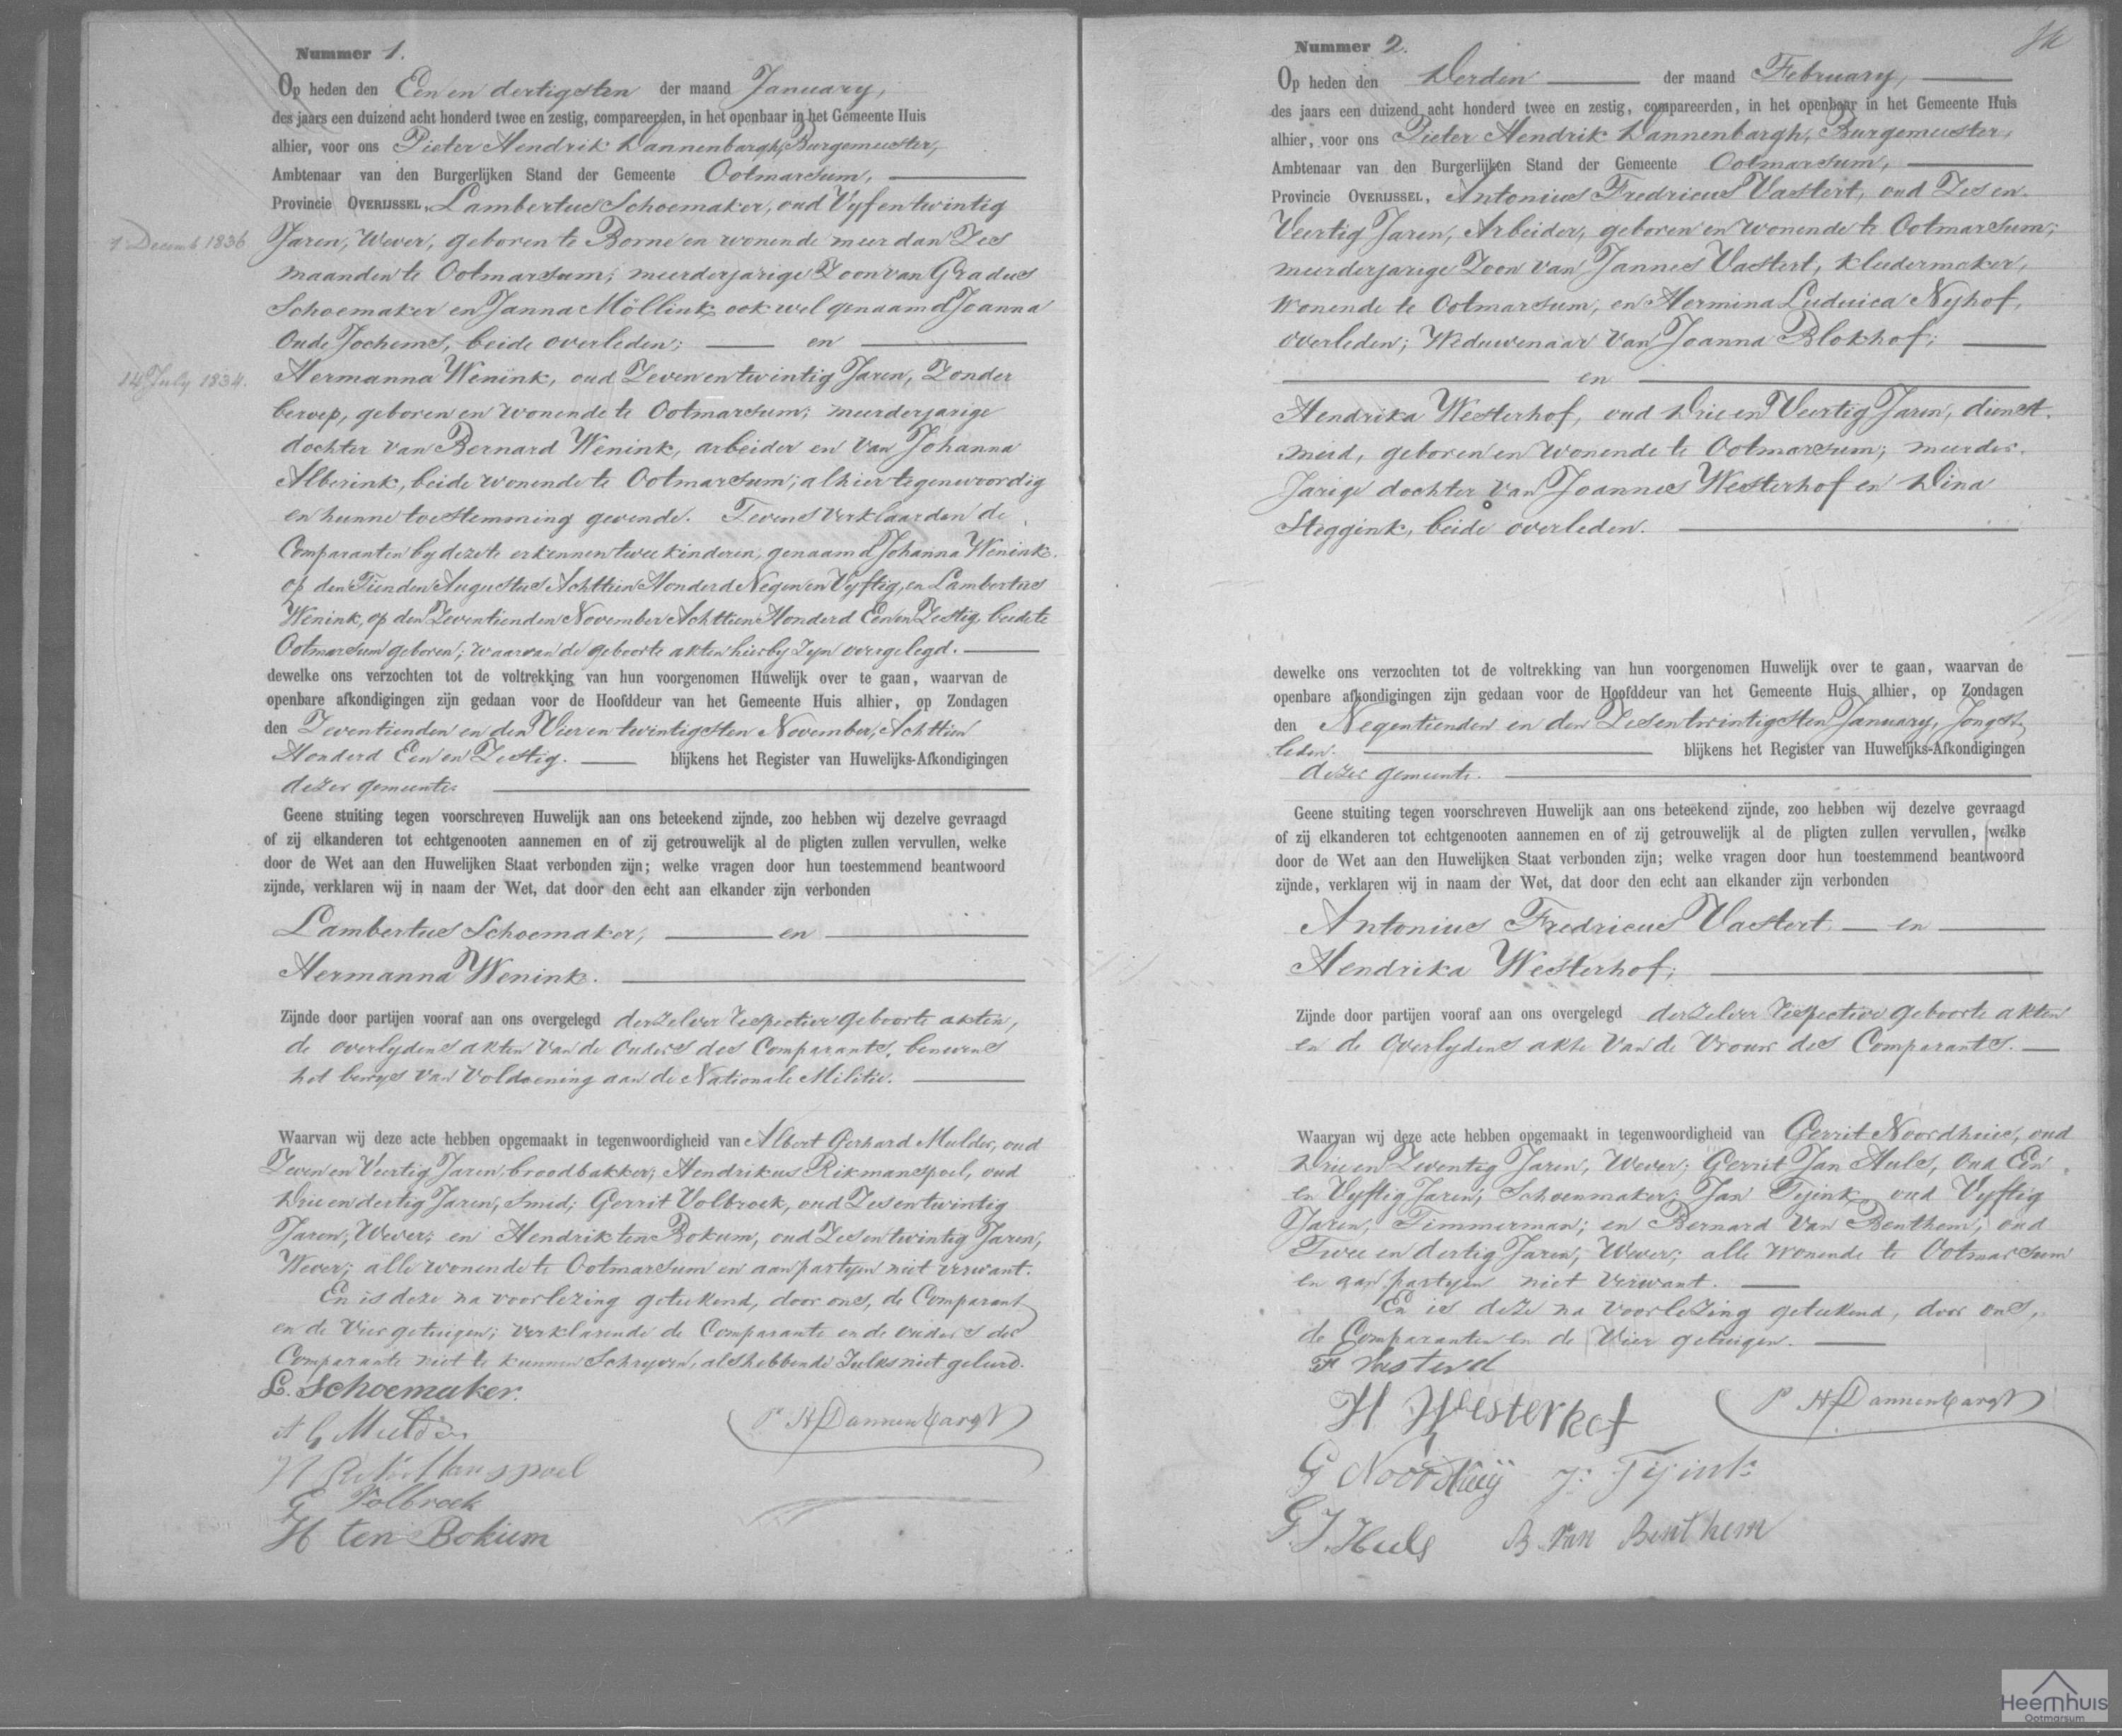 Nummer 1.
Op heden den Een en dertigsten der maand January,
des jaars een duizend acht honderd twee en zestig, compareerden, in het openbaar in het Gemeente Huis
alhier, voor ons Pieter Hendrik Dannenbargh, Burgemeester,
Ambtenaar van den Burgerlijken Stand der Gemeente Ootmarsum,
Provincie OVERIJSSEL, Lambertus Schoemaker, oud Vyf en twintig
1 Decemb 1836 Jaren, Wever, geboren te Borne en wonende meer dan Zes
maanden te Ootmarsum; meerderjarige Zoon van Gradus
Schoemaker en Janna Möllink ook wel genaamd Joanna
Oude Jochems, beide overleden; en
14 July 1834. Hermanna Wenink, oud Zeven en twintig Jaren, Zonder
beroep, geboren en wonende te Ootmarsum; meerderjarige
dochter van Bernard Wenink, arbeider en van Johanna
Alberink, beide wonende te Ootmarsum; alhier tegenwoordig
en hunne toestemming gevende. Tevens verklaarden de
Comparanten by deze te erkennen twee kinderen, genaamd Johanna Wenink.
op den Tienden Augustus Achttien Honderd Negen en Vyftig, en Lambertus
Wenink, op den Zeventienden November Achttien Honderd Een en Zestig, beide te
Ootmarsum geboren; waarvan de geboorte akten hierby Zyn overgelegd.
dewelke ons verzochten tot de voltrekking van hun voorgenomen Huwelijk over te gaan, waarvan de
openbare afkondigingen zijn gedaan voor de Hoofddeur van het Gemeente Huis alhier, op Zondagen
den Zeventienden en den Vier en twintigsten November, Achttien
Honderd Een en Zestig. blijkens het Register van Huwelijks-Afkondigingen
dezer gemeente.
Geene stuiting tegen voorschreven Huwelijk aan ons beteekend zijnde, zoo hebben wij dezelve gevraagd
of zij elkanderen tot echtgenooten aannemen en of zij getrouwelijk al de pligten zullen vervullen, welke
door de Wet aan den Huwelijken Staat verbonden zijn; welke vragen door hun toestemmend beantwoord
zijnde, verklaren wij in naam der Wet, dat door den echt aan elkander zijn verbonden
Lambertus Schoemaker, en
Hermanna Wenink.
Zijnde door partijen vooraf aan ons overgelegd derzelver respective geboorte akten,
de overlydens akten van de Ouders des Comparants, benevens
het bewys van voldoening aan de Nationale Militie.
Waarvan wij deze acte hebben opgemaakt in tegenwoordigheid van Albert Gerhard Mulder, oud
Zeven en Veertig Jaren, broodbakker; Hendrikus Rikmanspoel, oud
Drie en dertig Jaren, Smid; Gerrit Volbroek, oud Zes en twintig
Jaren, Wever; en Hendrik ten Bokum, oud Zes en twintig Jaren,
Wever; alle wonende te Ootmarsum en aan partyen niet verwant.
En is deze na voorlezing geteekend, door ons, de Comparant
en de Vier getuigen; verklarende de Comparante en de ouders der
Comparante niet te kunnen Schryven, als hebbende Zulks niet geleerd.
L. Schoemaker.
A G Mulder
P. H Dannenbargh
H Rikmanspoel
G Volbroek
H ten Bokum
Nummer 2.
Op heden den Derden der maand February,
des jaars een duizend acht honderd twee en zestig, compareerden, in het openbaar in het Gemeente Huis
alhier, voor ons Pieter Hendrik Dannenbargh, Burgemeester,
Ambtenaar van den Burgerlijken Stand der Gemeente Ootmarsum,
Provincie OVERIJSSEL, Antonius Fredricus Vastert, oud Zes en
Veertig Jaren, Arbeider, geboren en wonende te Ootmarsum;
meerderjarige Zoon van Jannes Vastert, kleedermaker,
wonende te Ootmarsum, en Hermina Luduica Nyhof,
overleden; Weduwenaar van Joanna Blokhof;
en
Hendrika Westerhof, oud Drie en Veertig Jaren, dienst.
meid, geboren en wonende te Ootmarsum; meerder.
Jarige dochter van Joannes Westerhof en Dina
Steggink, beide overleden.
dewelke ons verzochten tot de voltrekking van hun voorgenomen Huwelijk over te gaan, waarvan de
openbare afkondigingen zijn gedaan voor de Hoofddeur van het Gemeente Huis alhier, op Zondagen
den Negentienden en den Zes en twintigsten January, Jongst
leden. blijkens het Register van Huwelijks-Afkondigingen
dezer gemeente.
Geene stuiting tegen voorschreven Huwelijk aan ons beteekend zijnde, zoo hebben wij dezelve gevraagd
of zij elkanderen tot echtgenooten aannemen en of zij getrouwelijk al de pligten zullen vervullen, welke
door de Wet aan den Huwelijken Staat verbonden zijn; welke vragen door hun toestemmend beantwoord
zijnde, verklaren wij in naam der Wet, dat door den echt aan elkander zijn verbonden
Antonius Fredricus Vastert en
Hendrika Westerhof;
Zijnde door partijen vooraf aan ons overgelegd derzelver respective geboorte akten
en de Overlydens akte van de Vrouw des Comparants.
Waarvan wij deze acte hebben opgemaakt in tegenwoordigheid van Gerrit Noordhuis, oud
Drie en Zeventig Jaren, Wever; Gerrit Jan Huls, oud Een
en Vyftig Jaren, Schoenmaker; Jan Tyink oud Vyftig
Jaren, Timmerman; en Bernard van Benthem, oud
Twee en dertig Jaren, Wever; alle wonende te Ootmarsum
en aan partyen niet verwant.
En is deze na voorlezing geteekend, door ons,
de Comparanten en de Vier getuigen.
F Vasterd
H Westerhof
P H Dannenbargh
G Noordhuij J: Tijink
G. J. Huls B van Benthem
Heemhuis
Ootmarsum